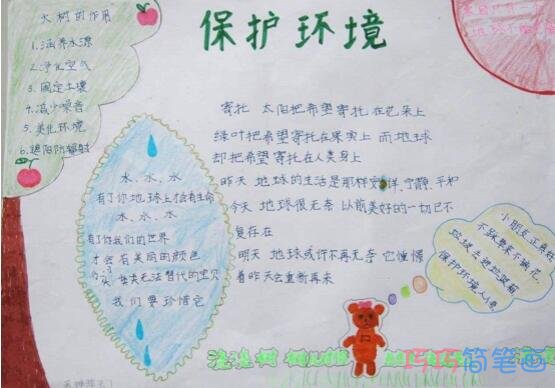 保护环境
大树的作用
1.涵养水源
2.净化空气
3.固定土壤
4.减少噪音
5.美化环境
6.遮阳防辐射
水、水、水
有了你地球上才有生命
水、水、水
有了你我们的世界
才会有美丽的颜色
你是无法替代的宝贝
我们要珍惜它
寄托 太阳把希望寄托在花朵上
绿叶把希望寄托在果实上 而地球
却把希望寄托在人类身上
昨天 地球的生活是那样安详、宁静、平和
今天 地球很无奈 以前美好的一切已不
复存在
明天 地球或许不再无奈 它憧憬
着昨天会重新再来
小朋友
垃圾
保护环境人人
浇浇树
巧巧简笔画